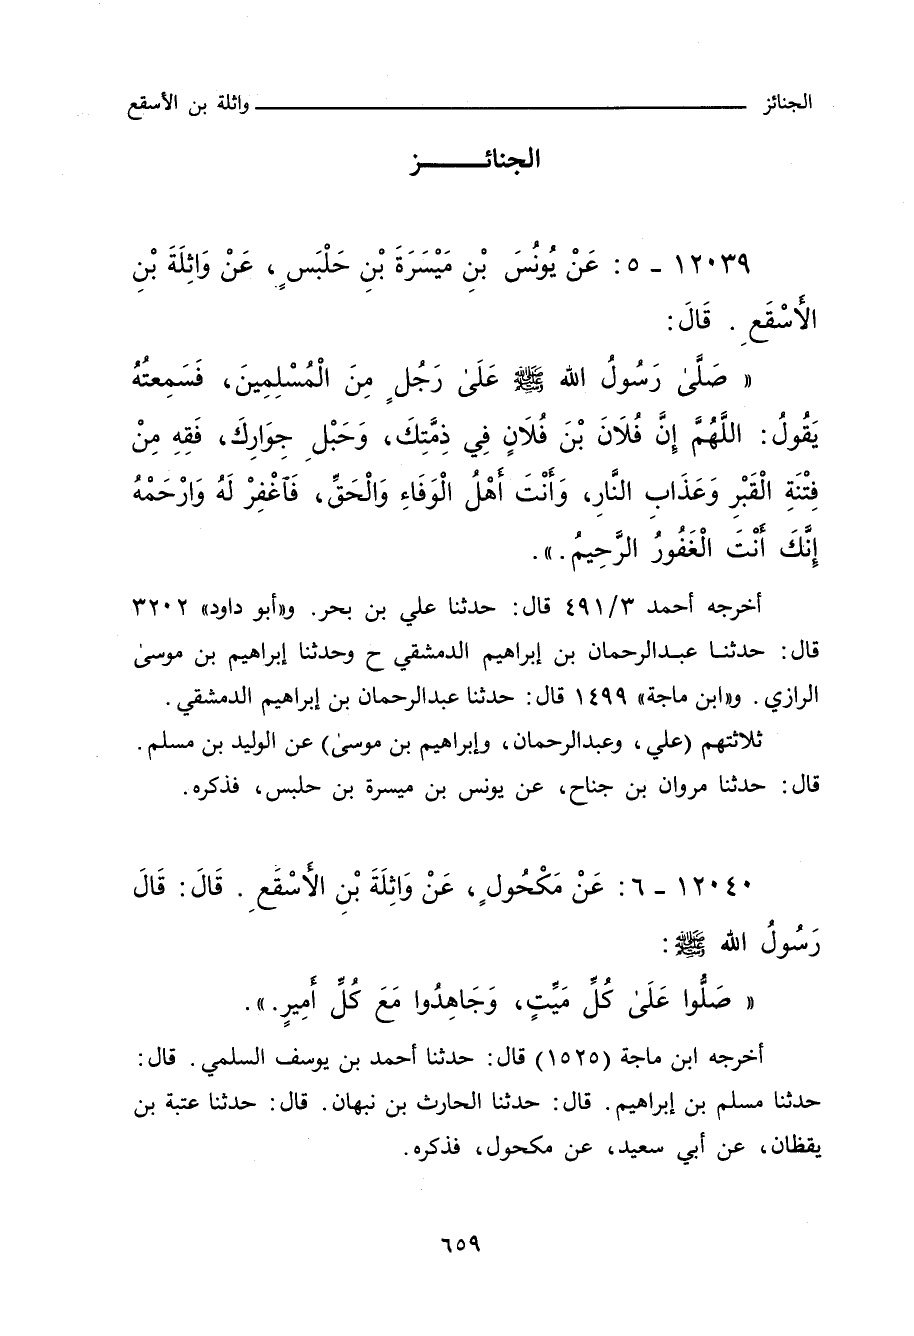 الجنائز ـــــــــ واثلة بن الأسقع
الجنائـــــز
١٢٠٣٩ - ٥ : عَنْ يُونُسَ بْنِ مَيْسَرَةَ بْنِ حَلْبَسٍ، عَنْ وَاثِلَةَ بْنِ
الأَسْقَعِ. قَالَ:
« صَلَّىٰ رَسُولُ اللهِ ﷺ عَلَىٰ رَجُلٍ مِنَ الْمُسْلِمِينَ، فَسَمِعتُهُ
يَقُولُ: اللَّهُمَّ إِنَّ فُلَانَ بْنَ فُلَانٍ فِي ذِمَّتِكَ، وَحَبْلِ جِوَارِكَ، فَقِهِ مِنْ
فِتْنَةِ الْقَبْرِ وَعَذَابِ النَّارِ، وَأَنْتَ أَهْلُ الْوَفَاءِ وَالْحَقِّ، فَآغْفِرْ لَهُ وَارْحَمْهُ
إِنَّكَ أَنْتَ الْغَفُورُ الرَّحِيمُ.».
أخرجه أحمد ٤٩١/٣ قال: حدثنا علي بن بحر. و«أبو داود» ٣٢٠٢
قال: حدثنا عبدالرحمان بن إبراهيم الدمشقي ح وحدثنا إبراهيم بن موسىٰ
الرازي. و«ابن ماجة» ١٤٩٩ قال: حدثنا عبدالرحمان بن إبراهيم الدمشقي.
ثلاثتهم (علي، وعبدالرحمان، وإبراهيم بن موسىٰ) عن الوليد بن مسلم.
قال: حدثنا مروان بن جناح، عن يونس بن ميسرة بن حلبس، فذكره.
١٢٠٤٠ - ٦ : عَنْ مَكْحُولٍ، عَنْ وَاثِلَةَ بْنِ الأَسْقَعِ. قَالَ: قَالَ
رَسُولُ اللهِ ﷺ:
« صَلُّوا عَلَىٰ كُلِّ مَيِّتٍ، وَجَاهِدُوا مَعَ كُلِّ أَمِيرٍ.».
أخرجه ابن ماجة (١٥٢٥) قال: حدثنا أحمد بن يوسف السلمي. قال:
حدثنا مسلم بن إبراهيم. قال: حدثنا الحارث بن نبهان. قال: حدثنا عتبة بن
يقظان، عن أبي سعيد، عن مكحول، فذكره.
٦٥٩